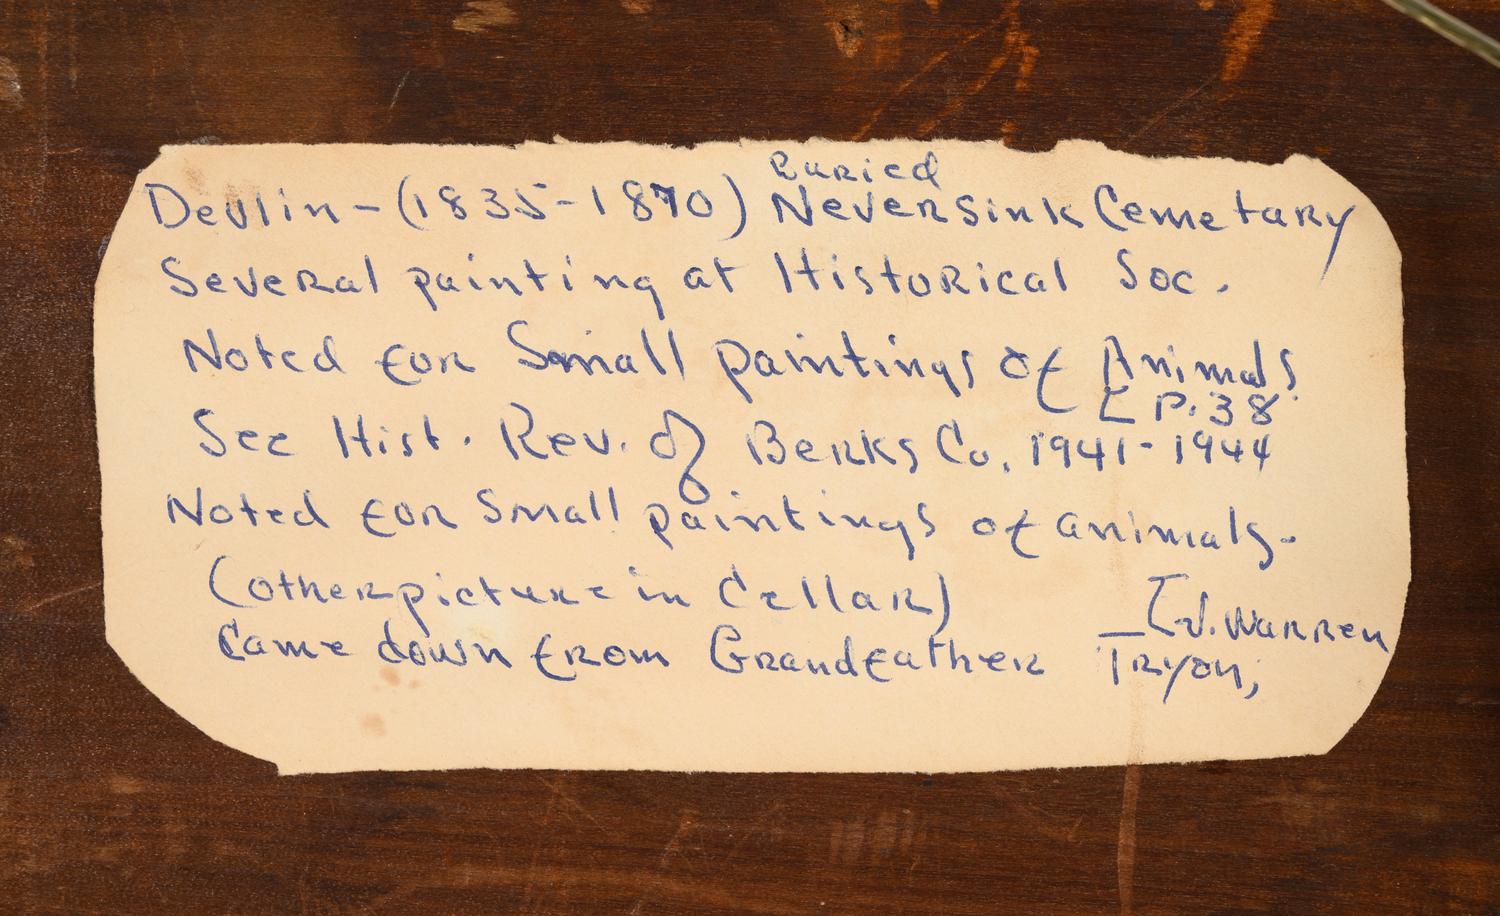 Buried
Devlin - (1835-1870) Neversink Cemetary
Several painting at Historical Soc.
Noted for Small paintings of Animals
P. 38
See Hist. Rev. of Berks Co. 1941-1944
Noted for Small paintings of animals-
(other picture in Cellar)
Came down from Grandfather
Warren
Tryon,